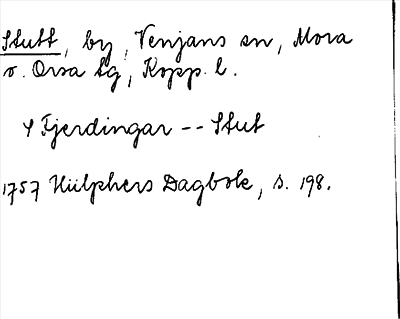 Stutt, by, Venjans sn, Mora
o. Orsa tg, Kopp. l.
4 Fjerdingar -- Stut
1757 Hülphers Dagbok, s. 198.